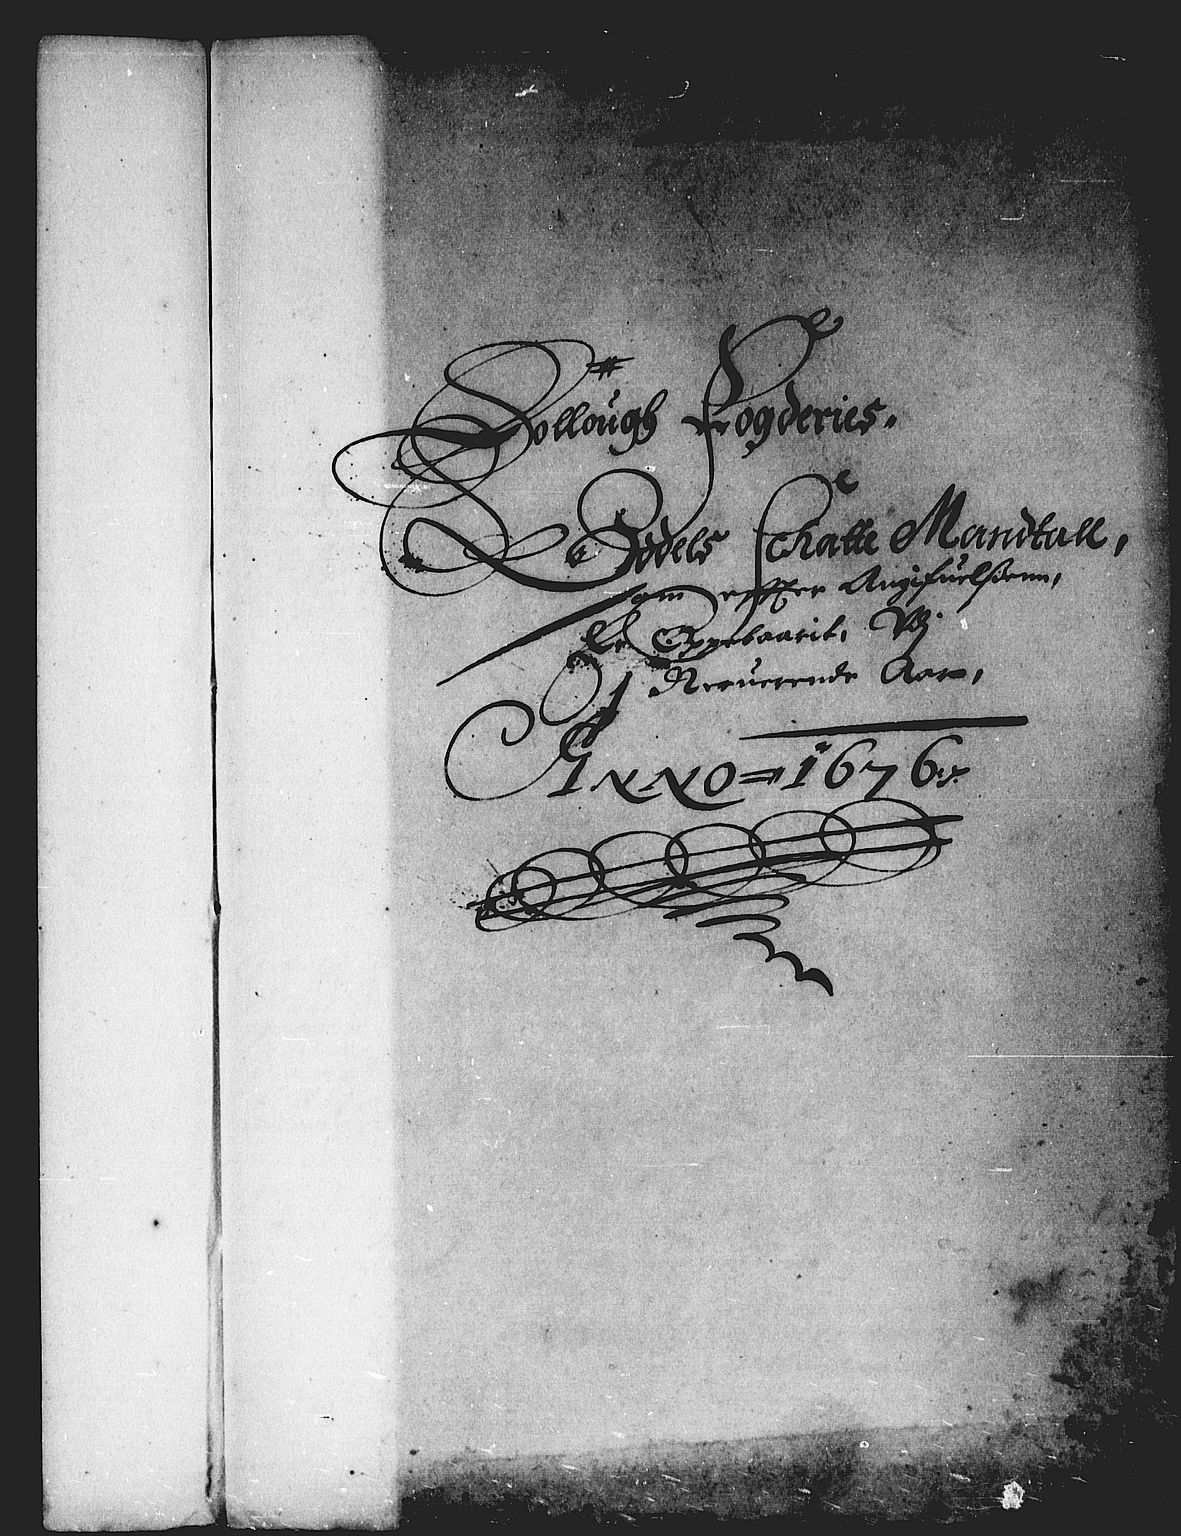 Follough Fogderies.
Oddels schatte Mandtall,
som effter Angifuelßenn,
Er Oppebaarit, 
j Neruerende Aar,
ANNO = 1676